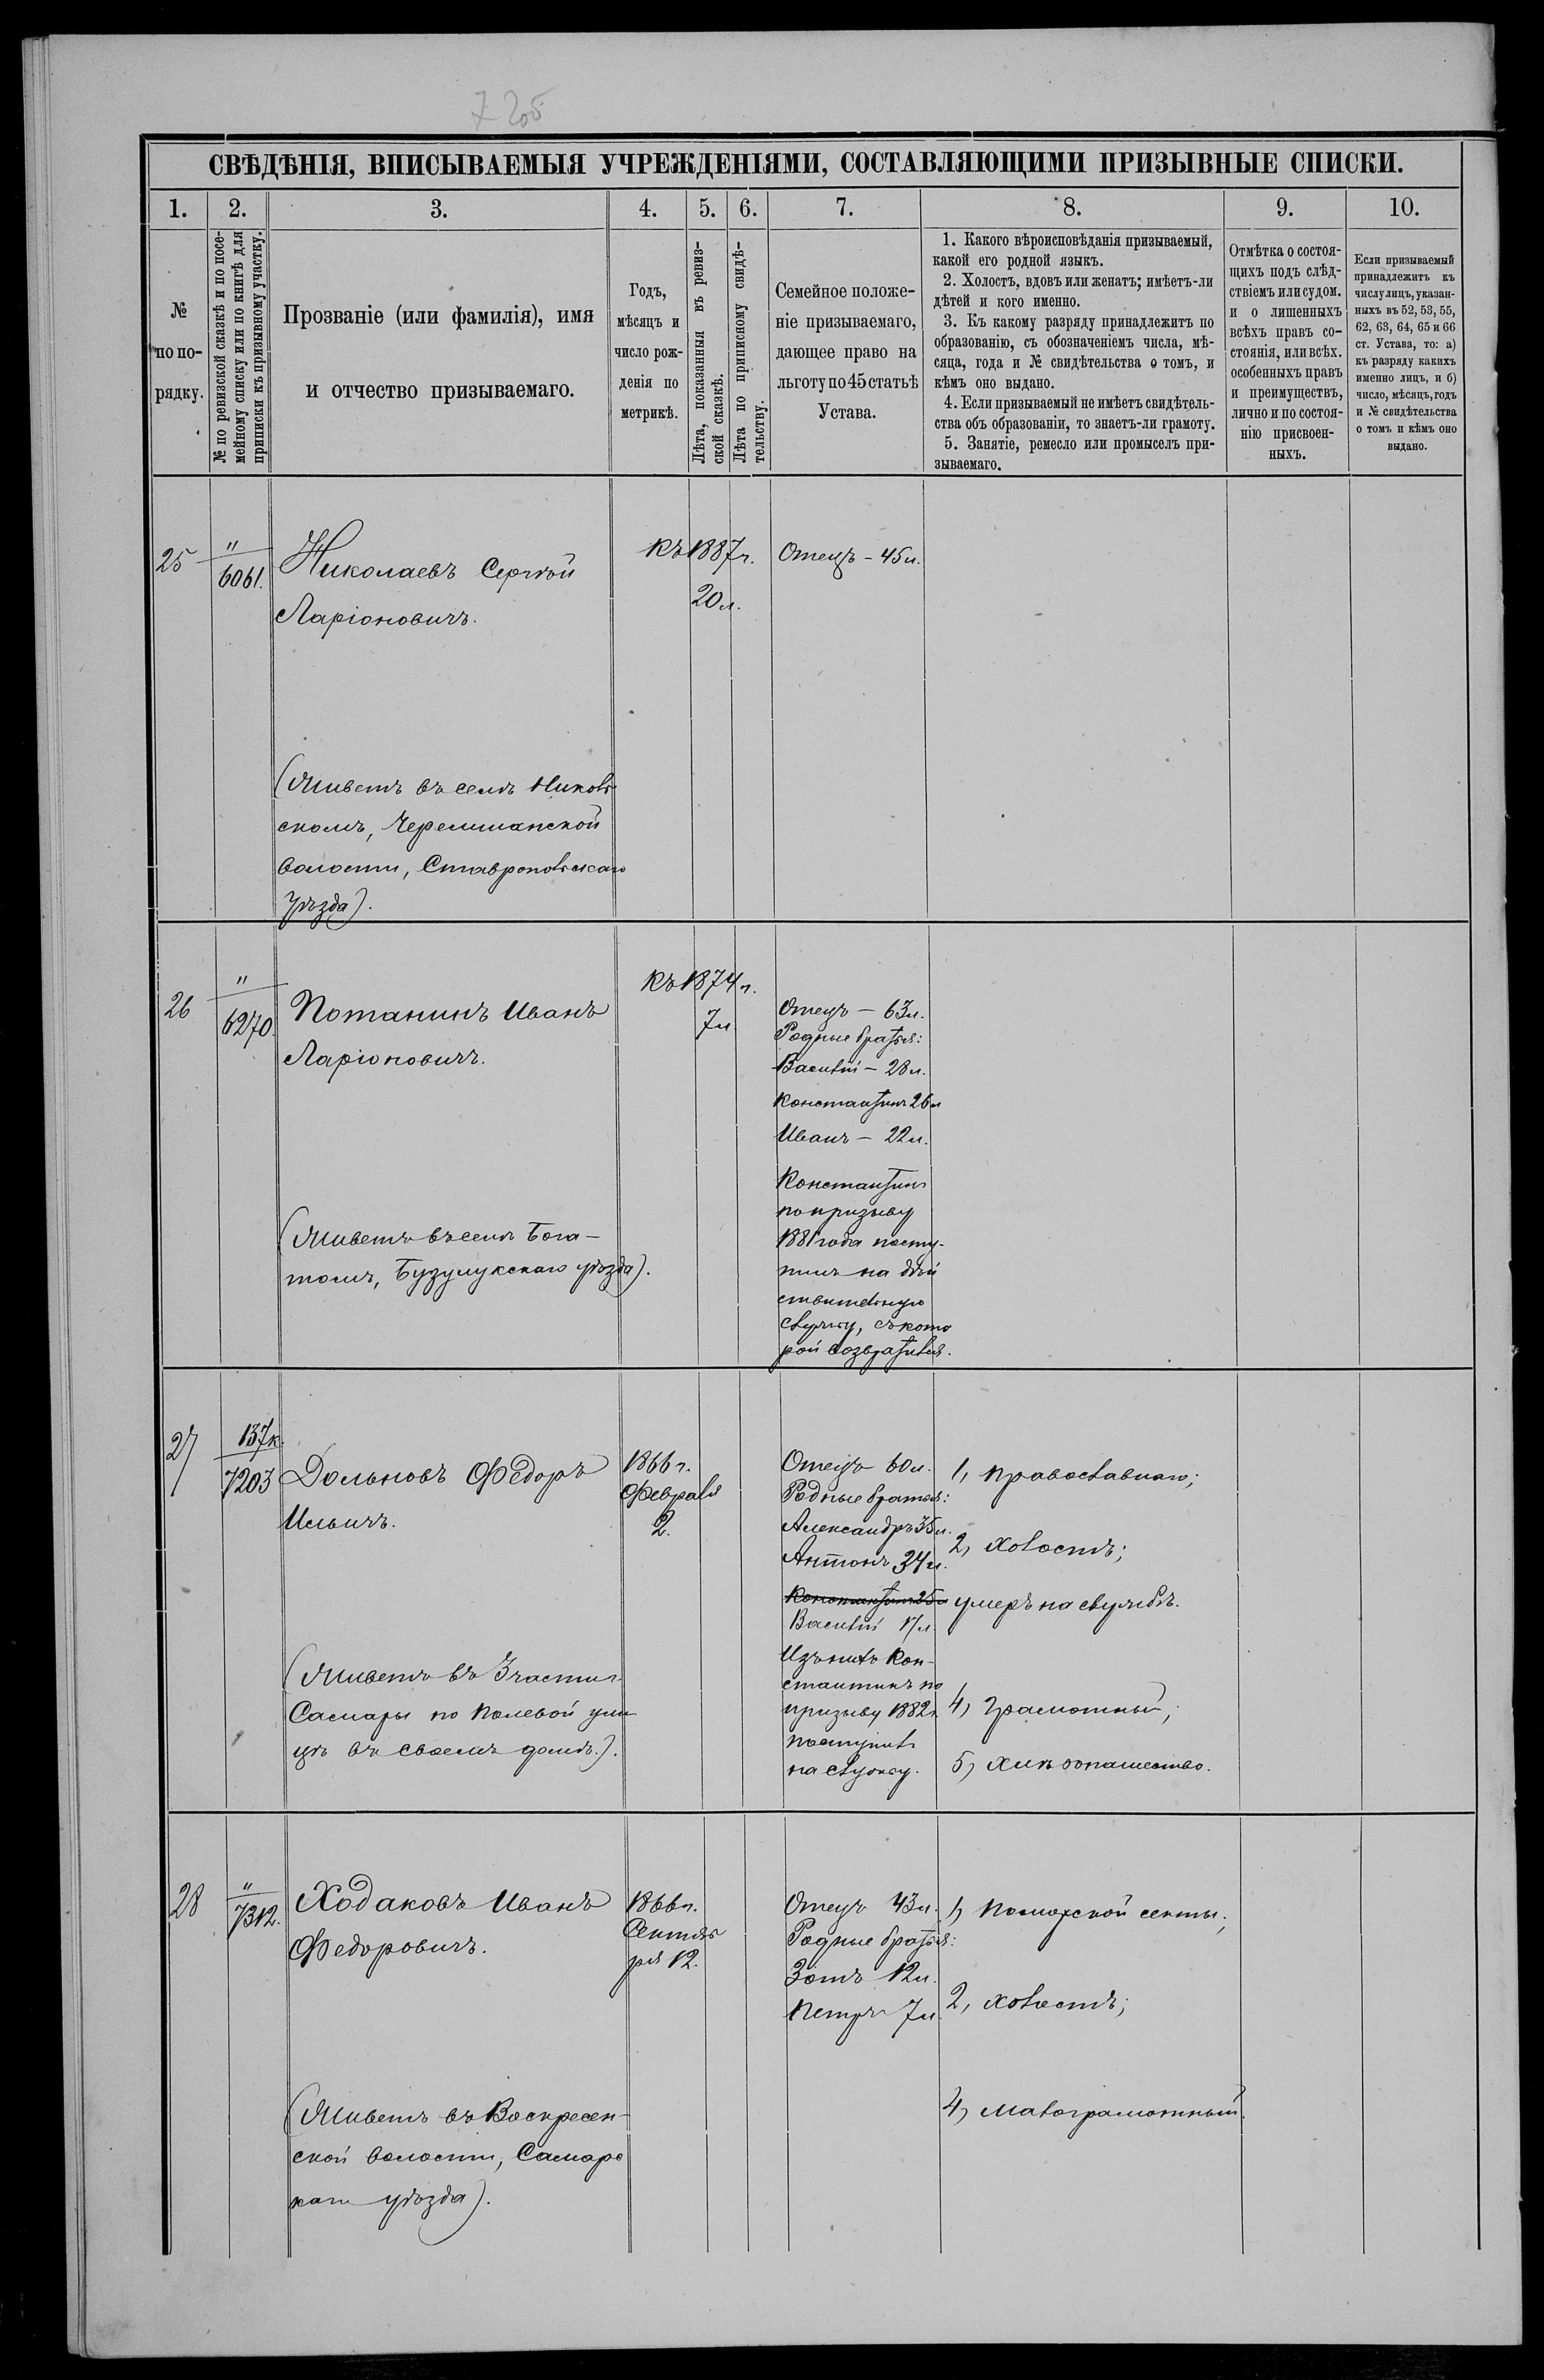 7 205
СВѢДѢНІЯ, ВПИСЫВАЕМЫЯ УЧРЕЖДЕНІЯМИ, СОСТАВЛЯЮЩИМИ ПРИЗЫВНЫЕ СПИСКИ.
1. 2. 3. 4. 5. 6. 7. 8. 9. 10.
№
по по-
рядку.
№ по ревизской сказкѣ и по посе-
мейному списку или по книгѣ для
приписки къ призывному участку.
Прозваніе (или фамилія), имя
и отчество призываемаго.
Годъ,
мѣсяцъ и
число рож-
денія по
метрикѣ.
Лѣта, показанныя въ ревиз-
ской сказкѣ.
Лѣта по приписному свидѣ-
тельству.
Семейное положе-
ніе призываемаго,
дающее право на
льготу по 45 статьѣ
Устава.
1. Какого вѣроисповѣданія призываемый,
какой его родной языкъ.
2. Холостъ, вдовъ или женатъ; имѣетъ-ли
дѣтей и кого именно.
3. Къ какому разряду принадлежитъ по
образованію, съ обозначеніемъ числа, мѣ-
сяца, года и № свидѣтельства о томъ, и
кѣмъ оно выдано.
4. Если призываемый не имѣетъ свидѣтель-
ства объ образованіи, то знаетъ-ли грамоту.
5. Занятіе, ремесло или промыселъ при-
зываемаго.
Отмѣтка о состоя-
щихъ подъ слѣд-
ствіемъ или судом.
и о лишенныхъ
всѣхъ правъ со-
стоянія, или всѣх.
особенныхъ правъ
и преимуществъ,
лично и по состоя-
нію присвоен-
ныхъ.
Если призываемый
принадлежитъ къ
числу лицъ, указан-
ныхъ въ 52, 53, 55,
62, 63, 64, 65 и 66
ст. Устава, то: а)
къ разряду какихъ
именно лицъ, и б)
число, мѣсяцъ, годъ
и № свидѣтельства
о томъ и кѣмъ оно
выдано.
25
"
6061.
Николаевъ Сергѣй
Ларіоновичъ.
(Живетъ въ селѣ Николь
скомъ, Черемшанской
волости, Ставропольскаго
уѣзда).
Къ 1887 г.
20 л.
Отецъ - 45 л.
26
"
6270.
Потанинъ Иванъ
Ларіоновичъ.
(Живетъ въ селѣ Бога-
томъ, Бузулукскаго уѣзда).
Къ 1874 г.
7 л
Отецъ - 63 л.
Родные братья:
Василій - 28 л.
Константинъ 26 л
Иванъ - 22 л.
Константинъ
по призыву
1881 года посту-
пилъ на дѣй
ствительную
службу, съ кото
рой возвратился.
27
137 к.
7203
Дольновъ Федоръ
Ильичъ.
(Живетъ въ 3 части г.
Самары по Полевой ули
цѣ въ своемъ домѣ.).
1866 г.
Февраля
2.
Отецъ 60 л.
Родные братья:
Александръ 35 л.
Антонъ 34 л.
Константинъ 25 л
Василій 17 л.
Изъ нихъ Кон-
стантинъ по
призыву 1882 г.
поступилъ
на службу.
1, Православнаго;
2, Холостъ;
умеръ на службѣ.
4, Грамотный;
5, Хлѣбопашество.
28
"
7312.
Ходаковъ Иванъ
Федоровичъ.
(Живетъ въ Воскресен-
ской волости, Самарс
каго уѣзда).
1866 г.
Сентяб
ря 12.
Отецъ 43 л.
Родные братья:
Зотъ 12 л.
Петръ 7 л.
1, Поморской секты;
2, Холостъ;
4, Малограмотный.